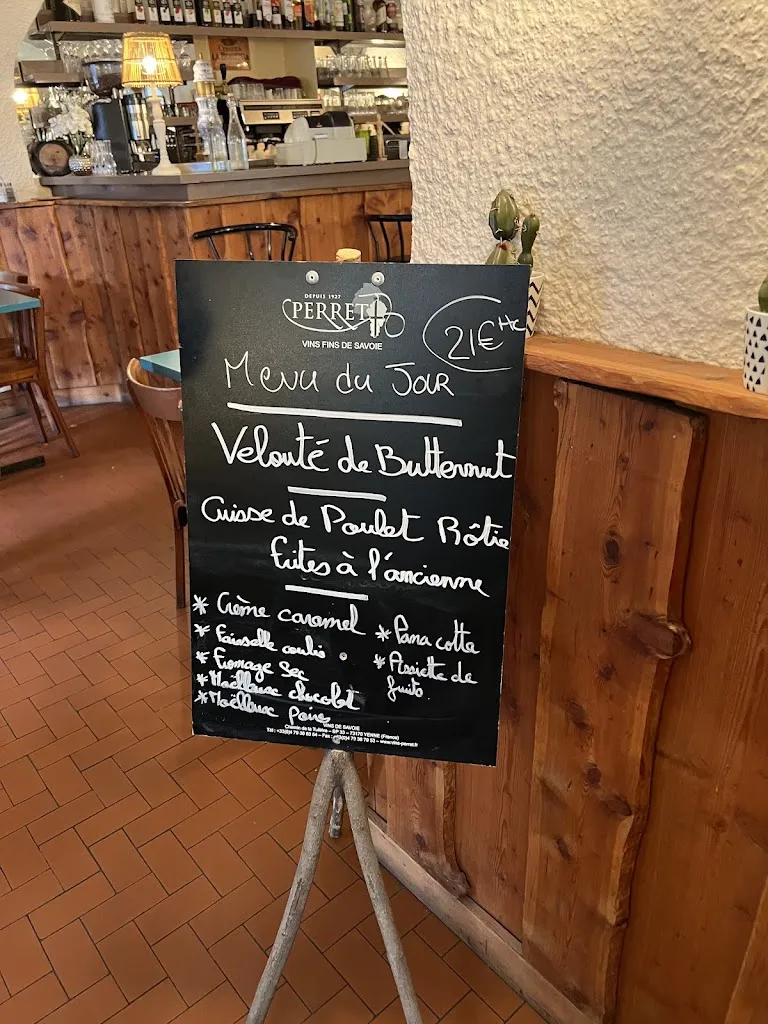 DEPUIS 1927
PERRET
VINS FINS DE SAVOIE
21€ ttc
Menu du Jour
Velouté de Butternut
Cuisse de Poulet Rôtie
frites à l'ancienne
* Crème caramel
* Faisselle coulis
* Fromage Sec
* Moëlleux chocolat
* Moëlleux poires
* Pana cotta
* Assiette de
fruits
VINS DE SAVOIE
Chemin de la Tullière - BP 33 - 73170 YENNE (France)